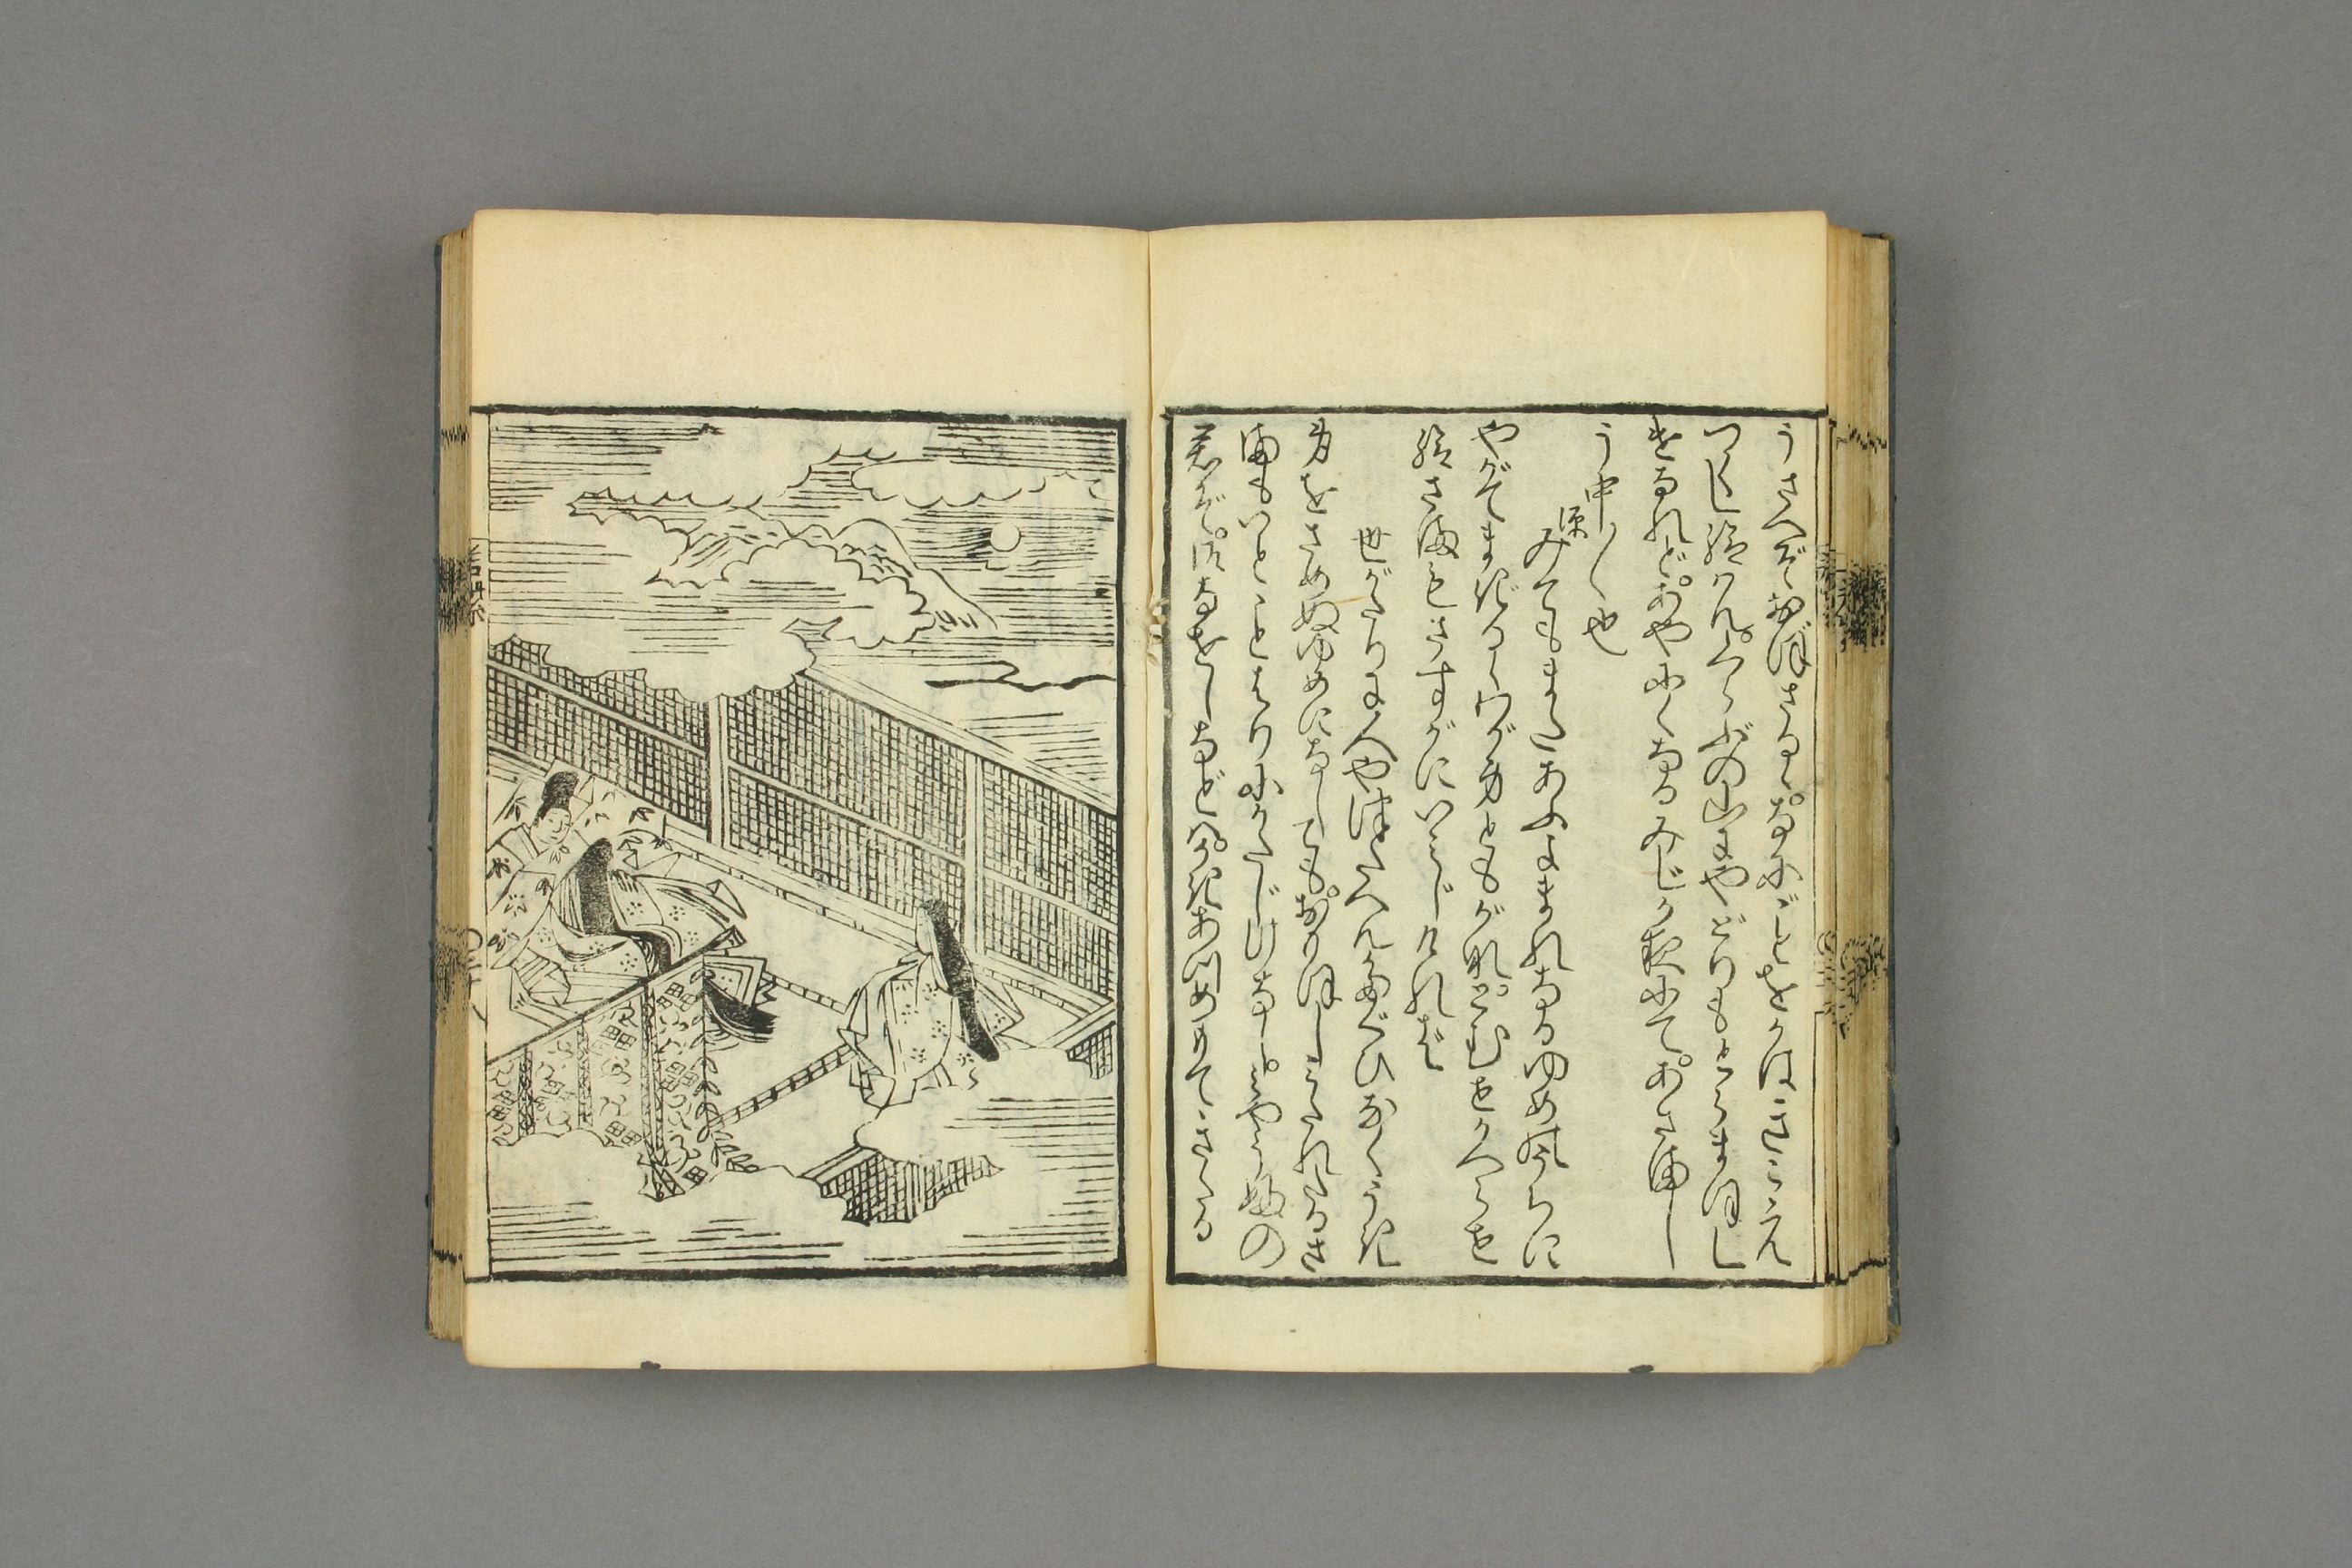 うさへぞおぼさるゝ。なにごとをかはきこえ
つくし給はん。くらぶの山にやどりもとらまほし
げなれど。あやにくなるみじか夜にて。あさまし
う中〳〵也
源
みてもまたあふよまれなるゆめのうちに
やがてまぎるゝわが身ともがな。とむせかへらせ
給さまもさすがにいみじければ
世がたりに人やつたへんたぐひなくうき
身をさめぬゆめになしても。おぼしみだれたるさ
まもいとことはりにかたじけなし。命婦の
君ぞ。御なをしなどは。かきあつめもてきたる
若紫